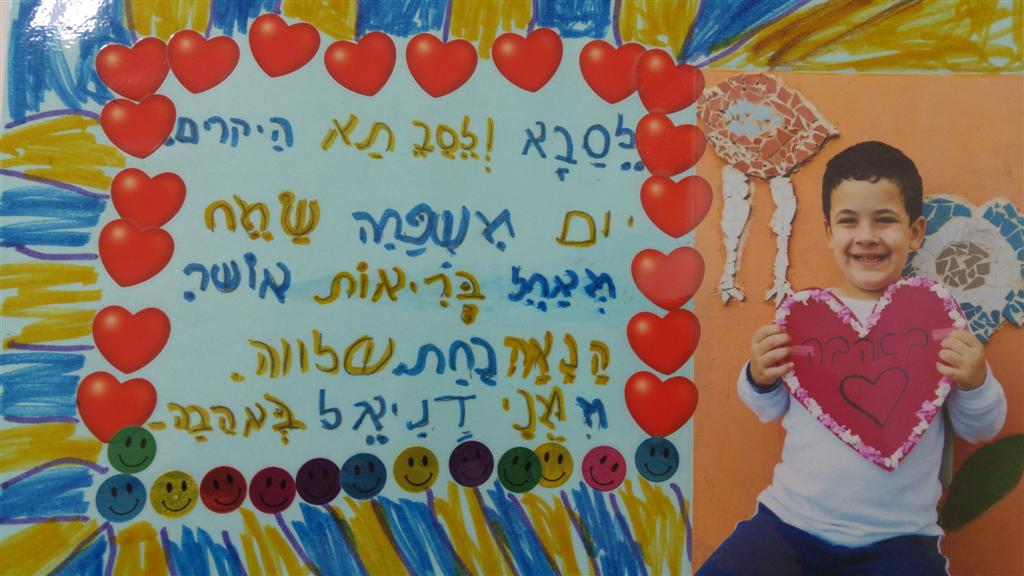 לְסַבָא וְלְסַבָתַא הַיקרים.
יום מִשְׁפַּחָה שַׂמֵחַ
מְאַחֵל בְּרִיאוֹת אושר
הַנָאָה נַחַת שלווה.
מִמֶנִי דָנִיאֵל בְּאַהַבָה-
באהבה